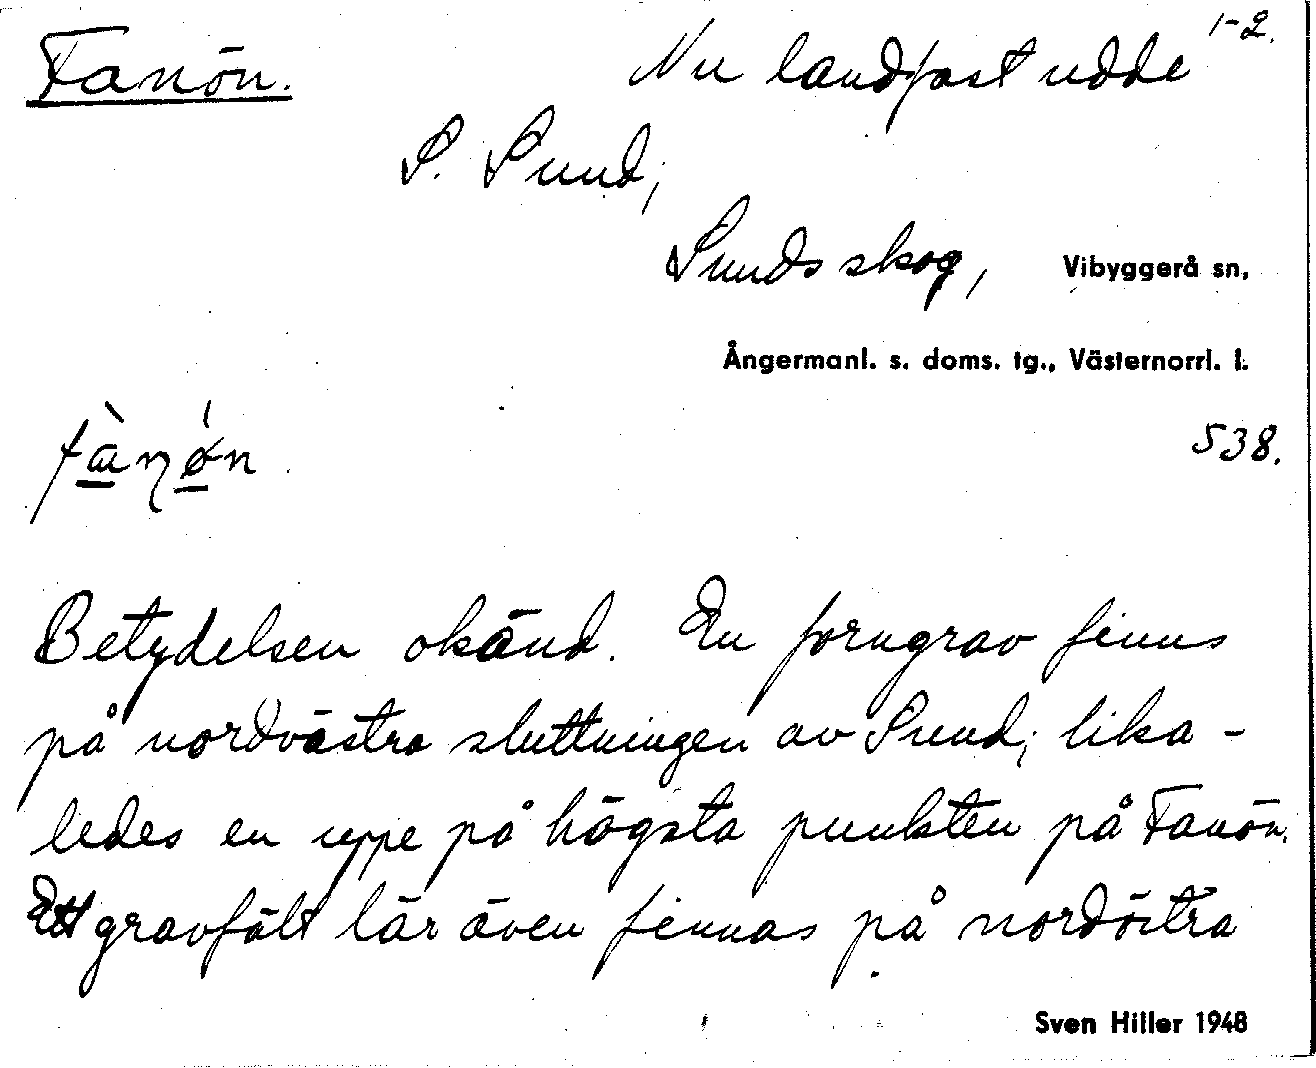 Fanön. Nu landfast udde 1-2.
S. Sund;
Sunds skog, Vibyggerå sn,
Ångermanl. s. doms. tg., Västernorrl. l.
538.
Betydelsen okänd. En forngrav finns
på nordvästra sluttningen av Sund; lika-
ledes en uppe på högsta punkten på Fanön.
Ett gravfält lär även finnas på nordöstra
Sven Hiller 1948